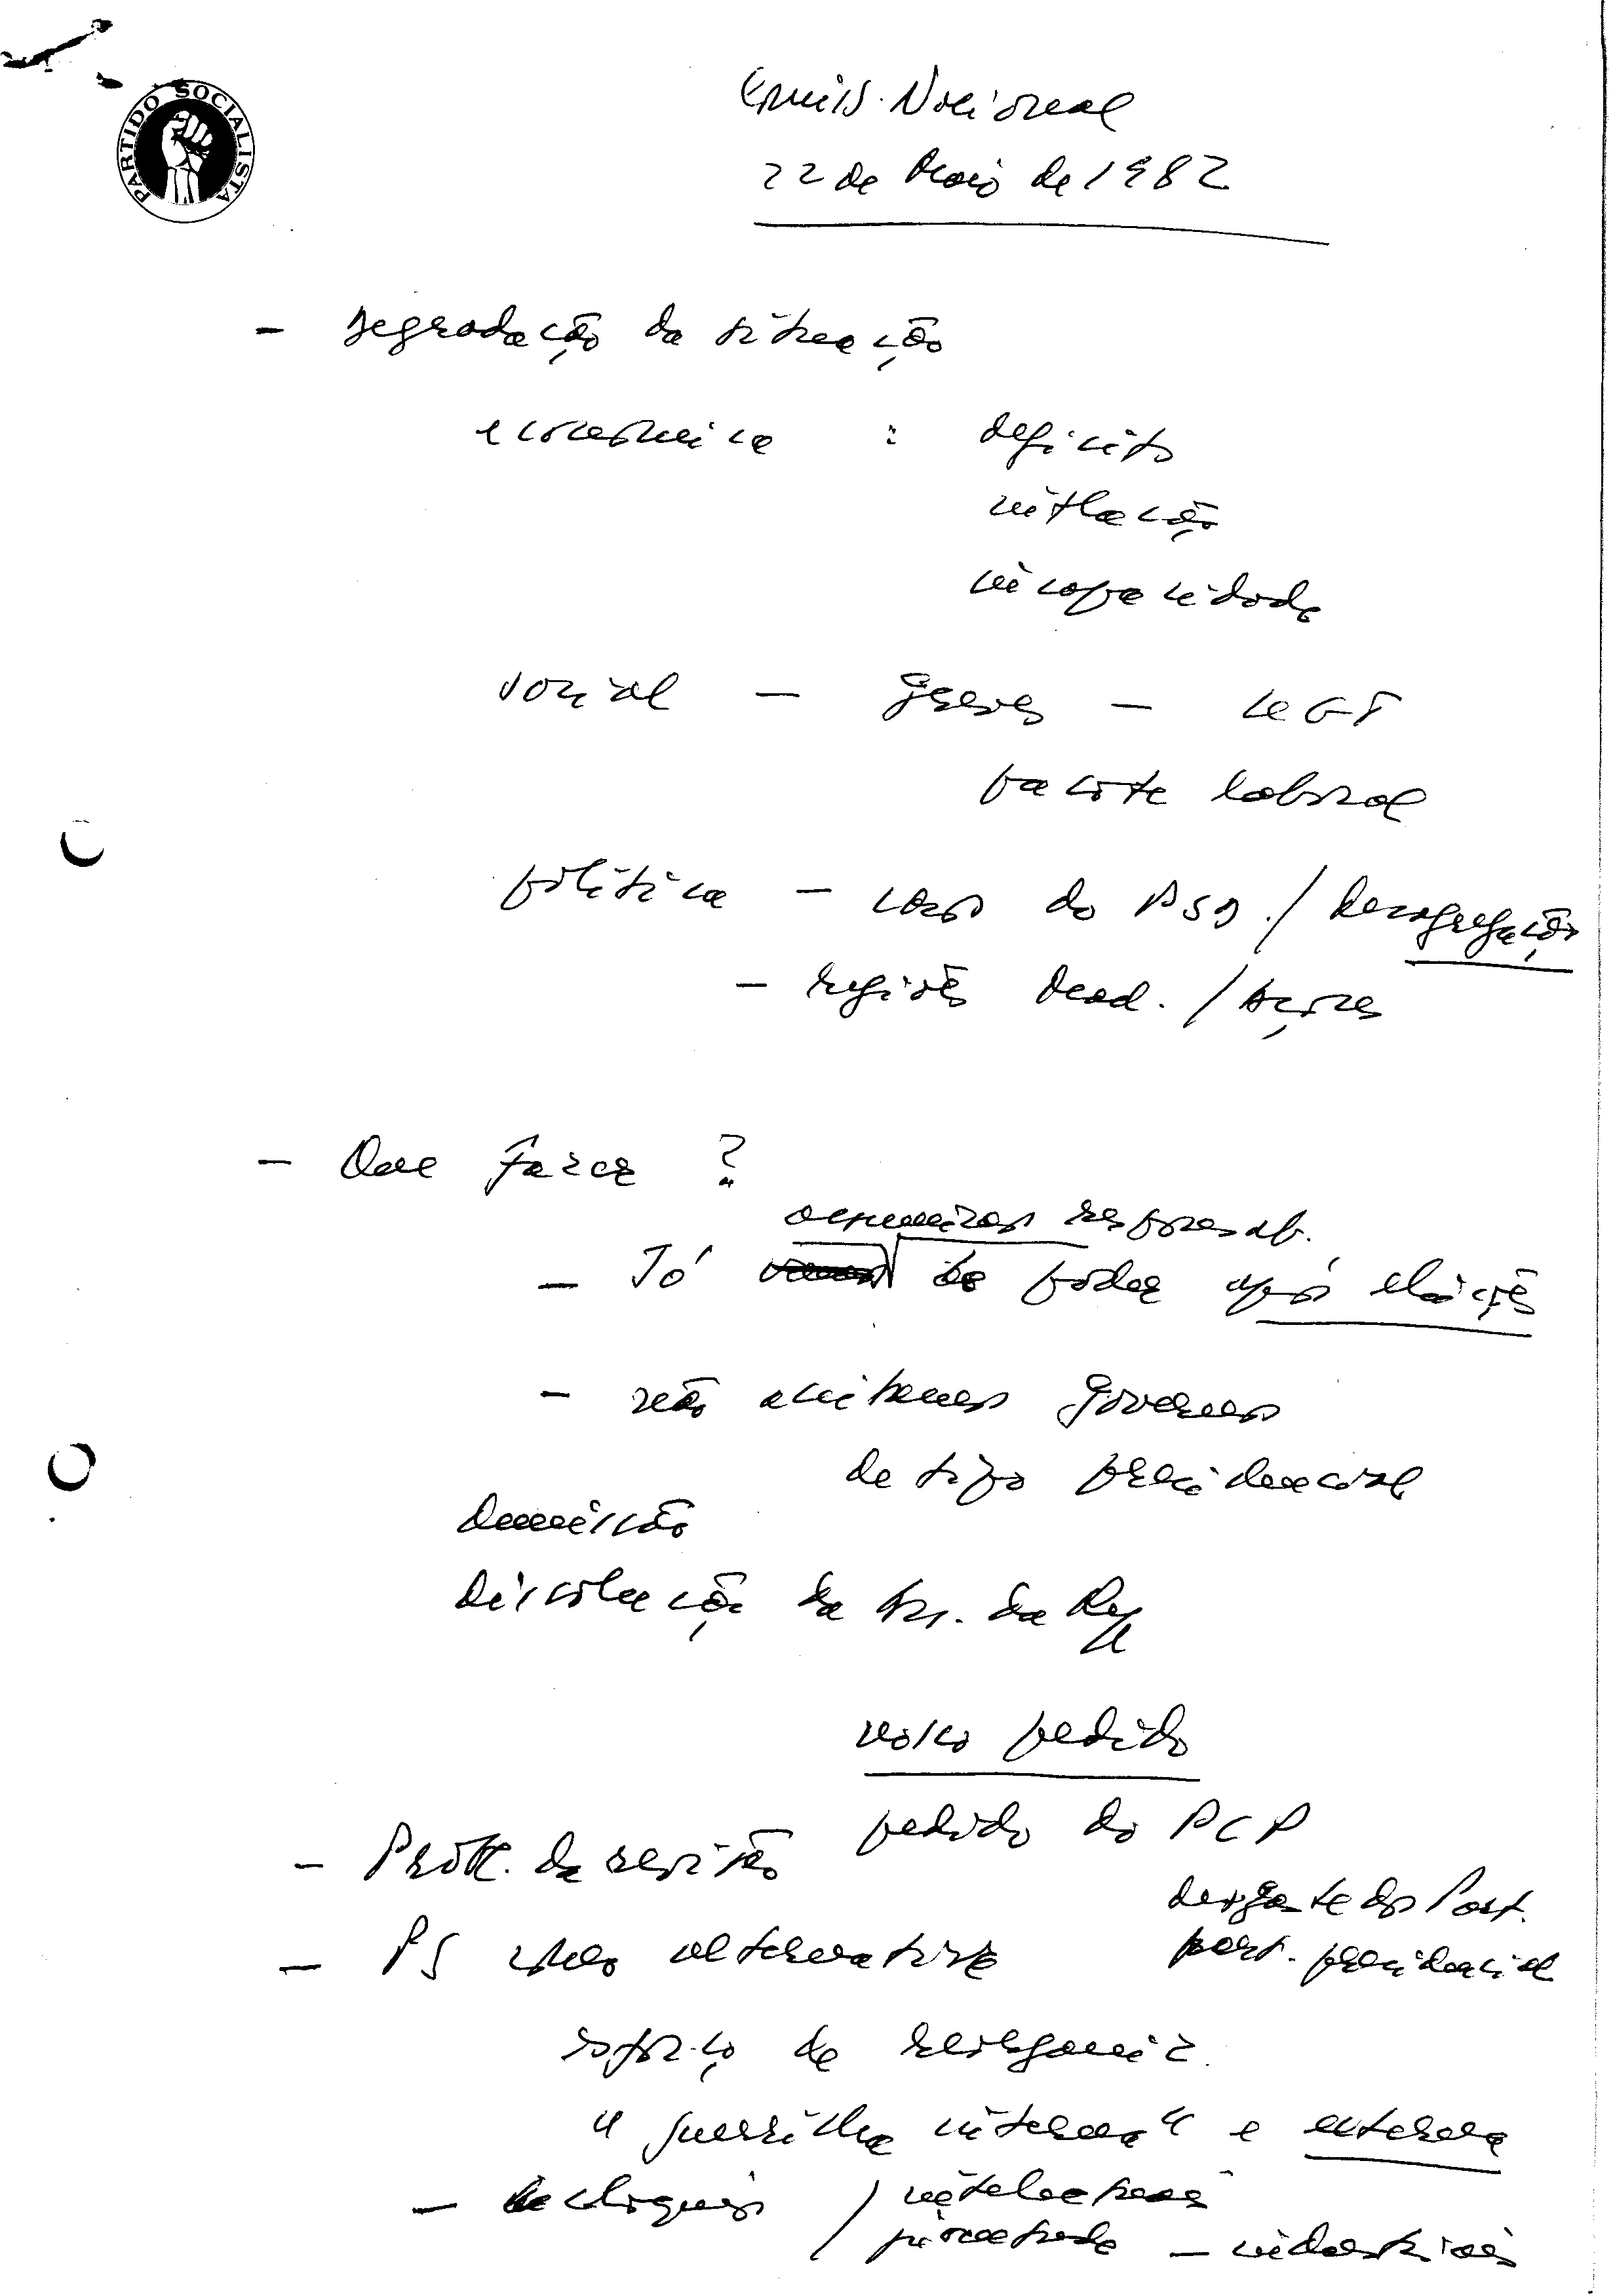 PARTIDO SOCIALISTA
Comiss. Nacional
22 de Maio de 1982
- Degradação da situação
económica : deficits
inflação
incapacidade
social - greves - UGT
pacote laboral
política - caso do PSD. / desagregação
- regiões Mad. / Açores
- Que fazer ?
assumimos responsab.
- Só de poder após eleições
- não aceitamos governos
de tipo presidencial
demissão
Dissolução da As. da Rep
nosso pedido
pedido do PCP
- Probl. da revisão
desgaste dos Part.
- PS como alternativa
part. presidencial
esforço de reorganiz.
"guerrilha interna" e externa
- colóquios / intelectuais
juventude - industriais